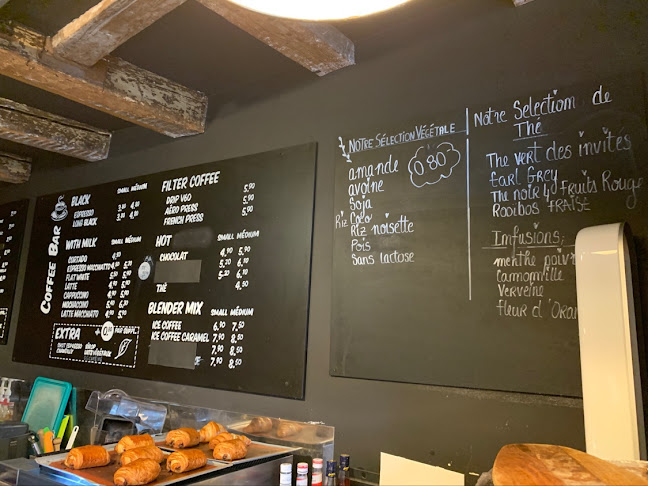 COFFEE BAR
BLACK SMALL MÉDIUM
ESPRESSO
LONG BLACK
WITH MILK SMALL MÉDIUM
CORTADO
ESPRESSO MACCHIATO
FLAT WHITE
LATTE
CAPPUCCINO
MOCHACCINO
LATTE MACCHIATO
EXTRA
SHOT ESPRESSO
CHANTILLY
SIROP
LAIT VÉGÉTAUX
FILTER COFFEE
DRIP V60 5,90
AÉRO PRESS 5,90
FRENCH PRESS 5,90
HOT SMALL MÉDIUM
4,90 5,90
CHOCOLAT 5,20 6,90
5,20 6,90
THÉ 4,50
BLENDER MIX SMALL MÉDIUM
ICE COFFEE 6,90 7,50
ICE COFFEE CARAMEL 7,90 8,50
7,90 8,50
7,90 8,50
NOTRE SÉLECTION VÉGÉTALE
0,80
amande
avoine
soja
Riz Coco
Riz noisette
Pois
Sans lactose
Notre Selection de
Thé
The vert des invités
Earl Grey
The noir 4 Fruits Rouge
Rooibos FRAISE
Infusions;
menthe poivr
Camomille
Verveine
fleur d'Oran